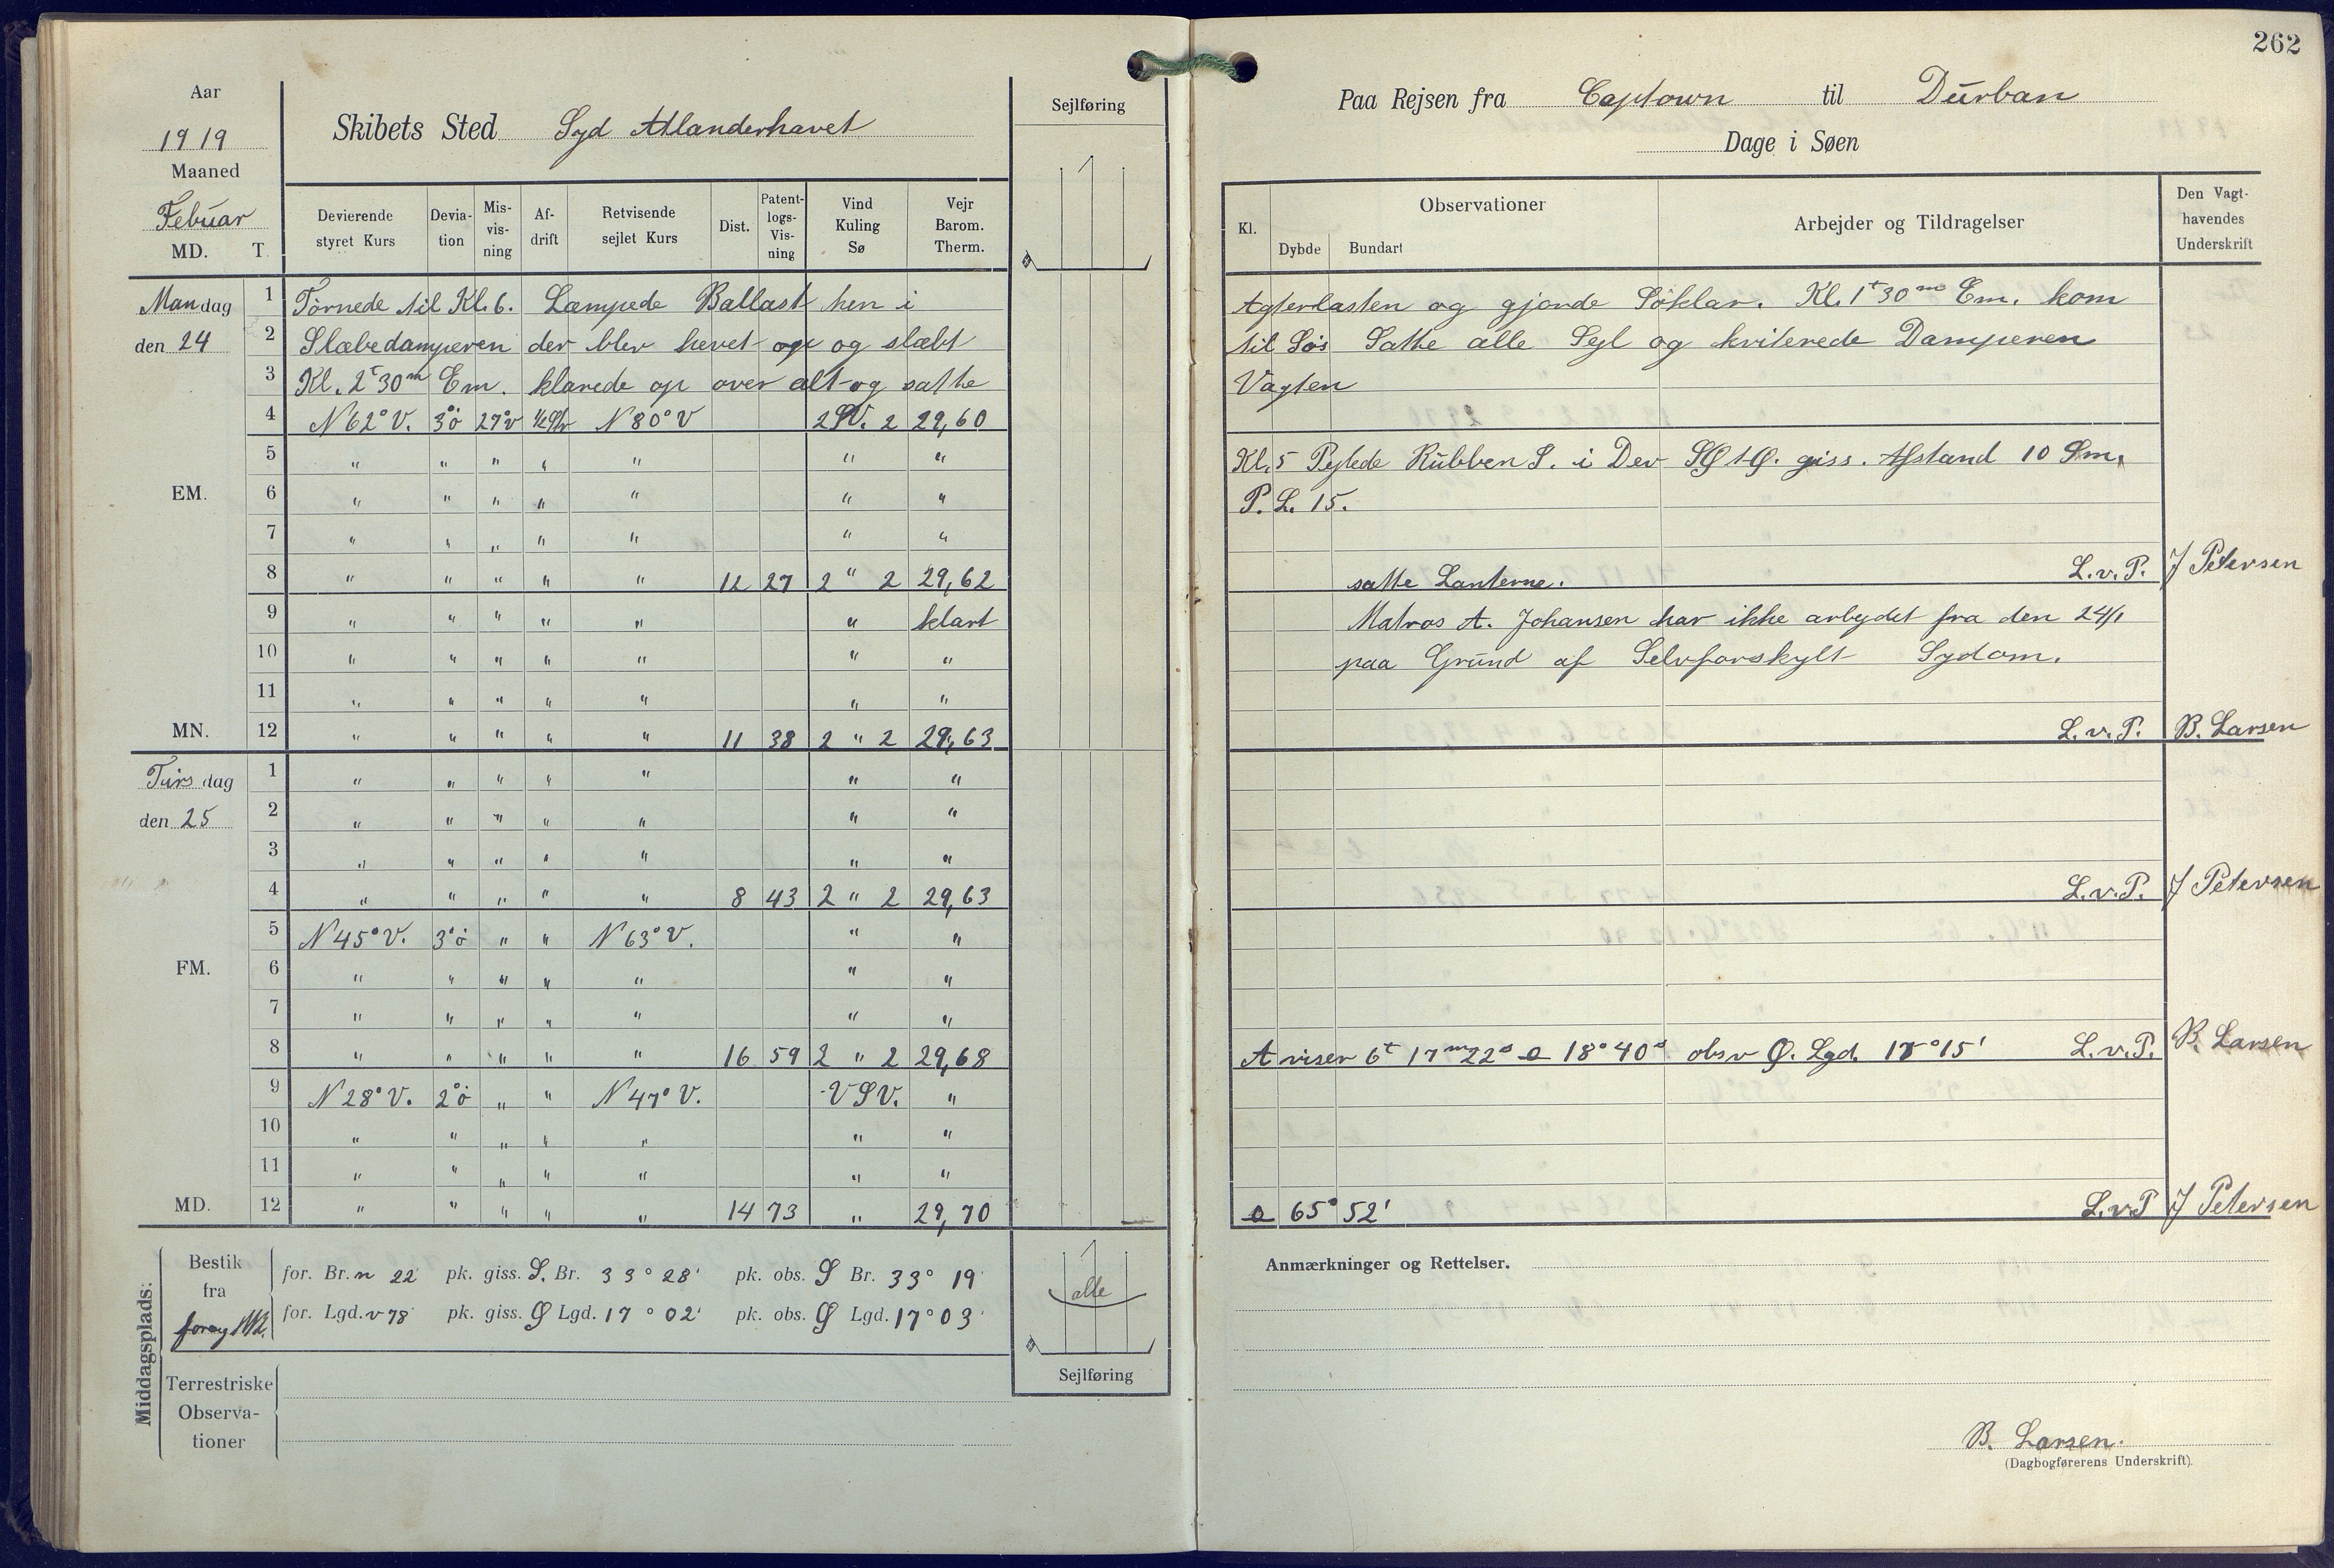 262
Aar
1919
Maaned
Febuar
MD. T.
Skibets Sted Syd Atlanderhavet
Sejlføring
Paa Rejsen fra Captown til Durban
Dage i Søen
Devierende styret Kurs
Deviation
Misvisning
Afdrift
Retvisende sejlet Kurs
Dist.
Patentlogs-Visning
Vind Kuling Sø
Vejr Barom. Therm.
Kl.
Observationer
Dybde Bundart
Arbejder og Tildragelser
Den Vagthavendes Underskrift
Mandag 1 Tørnede til Kl. 6. Læmpede Ballast hen i Agterlasten og gjorde Søklar. Kl. 1t 30m Em. kom
den 24 2 Slæbedamperen der blev hevet op og slæbt til Søs Satte alle Sejl og kviterede Damperen
3 Kl. 2t 30m Em. klarede op over alt og satte Vagten
4 N 62° V. 3°ö 27°v N 80° V 2 SV. 2 29,60
5 " " " " " " " Kl. 5 Pejlede Rubben S. i Dev SØ t Ø. giss. Afstand 10 Sm.
EM. 6 " " " " " " " P. L. 15.
7 " " " " " " "
8 " " " " " 12 27 2 " 2 29,62 satte Lanterne. L.v.P. J Petersen
9 " " " " " " klart Matros A. Johansen har ikke arbejdet fra den 24/1
10 " " " " " " " paa Grund af Selvforskylt Sydom.
11 " " " " " " "
MN. 12 " " " " " 11 38 2 " 2 29,63 L.v.P. B. Larsen
Tirsdag 1 " " " " " " "
den 25 2 " " " " " " "
3 " " " " " " "
4 " " " " " 8 43 2 " 2 29,63 L.v.P. J Petersen
5 N 45° V. 3°ö " " N 63° V. " "
FM. 6 " " " " " " "
7 " " " " " " "
8 " " " " " 16 59 2 " 2 29,68 A viser 6t 17m 22s 18° 40s obsv Ø. Lgd. 17° 15' L.v.P. B. Larsen
9 N 28° V. 2°ö " " N 47° V. VSV. "
10 " " " " " " "
11 " " " " " " "
MD. 12 " " " " " 14 73 " 29,70 65° 52' L.v.P J Petersen
Middagsplads:
Bestik fra
for. Br. n 22' pk. giss. S. Br. 33° 28' pk. obs. S Br. 33° 19'
for. Lgd. v 78' pk. giss. Ø Lgd. 17° 02' pk. obs. Ø Lgd. 17° 03'
alle
Sejlføring
Terrestriske Observationer
Anmærkninger og Rettelser.
B. Larsen.
(Dagbogførerens Underskrift).